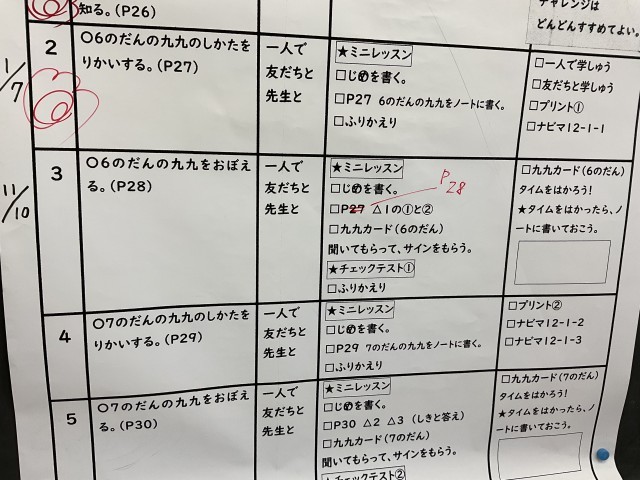 知る。(P26)
チャレンジは
どんどんすすめてよい。
1/7
2
〇6のだんの九九のしかたを
りかいする。(P27)
一人で
友だちと
先生と
★ミニレッスン
□じ㋱を書く。
□P27 6のだんの九九をノートに書く。
□ふりかえり
□一人で学しゅう
□友だちと学しゅう
□プリント①
□ナビマ12-1-1
11/10
3
〇6のだんの九九をおぼえ
る。(P28)
一人で
友だちと
先生と
★ミニレッスン
□じ㋱を書く。
□P27 △1の①と②
P28
□九九カード(6のだん)
聞いてもらって、サインをもらう。
★チェックテスト①
□ふりかえり
□九九カード(6のだん)
タイムをはかろう!
★タイムをはかったら、ノ
ートに書いておこう。
4
〇7のだんの九九のしかたを
りかいする。(P29)
一人で
友だちと
先生と
★ミニレッスン
□じ㋱を書く。
□P29 7のだんの九九をノートに書く。
□ふりかえり
□プリント②
□ナビマ12-1-2
□ナビマ12-1-3
5
〇7のだんの九九をおぼえ
る。(P30)
一人で
友だちと
先生と
★ミニレッスン
□じ㋱を書く。
□P30 △2 △3 (しきと答え)
□九九カード(7のだん)
聞いてもらって、サインをもらう。
★チェックテスト②
□九九カード(7のだん)
タイムをはかろう!
★タイムをはかったら、ノ
ートに書いておこう。